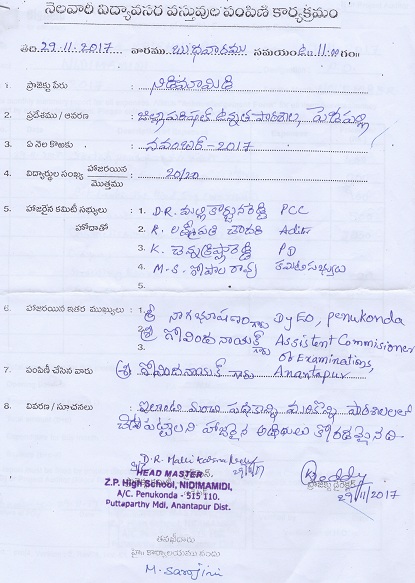 నెలవారీ విద్యావసర వస్తువుల పంపిణీ కార్యక్రమం
తేది: 29-11-2017 వారము బుధవారము సమయం ఉ॥ 11-00 గం॥
1. ప్రాజెక్టు పేరు : నిడిమామిడి
2. ప్రదేశము / ఆవరణ : జిల్లాపరిషత్ ఉన్నత పాఠశాల, పెడపల్లి
3. ఏ నెల కొఱకు : నవంబర్ - 2017
4. విద్యార్థుల సంఖ్య హాజరయిన / మొత్తము : 20/20
5. హాజరైన కమిటీ సభ్యులు : 1. D.R. మల్లికార్జునరెడ్డి PCC
హోదాతో 2. R. లక్ష్మీపతి చౌదరి
3. K. చెన్నక్రిష్ణారెడ్డి PD
4. M.S. గోపాల రావ్ కమిటీసభ్యులు
5.
6. హాజరయిన ఇతర ముఖ్యులు : 1. శ్రీ నాగభూషణం గారు DyEO, penukonda
2. శ్రీ గోవిందునాయక్ గారు Assistent Commissioner
3. of Examinations,
7. పంపిణీ చేసిన వారు : శ్రీ గోవిందనాయక్ గారు Anantapur
8. వివరణ / సూచనలు : ఇలాంటి మంచి పథకాన్ని మరికొన్ని పాఠశాలలలో
చేపట్టాలని హాజరైన అతిథులు కోరడమైనది.
D.R. Malli Karjna Reddy
29/11/17
HEAD MASTER
Z.P. High School, NIDIMAMIDI,
A/C. Penukonda - 515 110.
Puttaparthy Mdl, Anantapur Dist.
Reddy
ప్రాజెక్ట్ డైరెక్టర్
29/11/2017
తనఖీదారు
హై॥ కార్యాలయము నందు
M. Sarojini